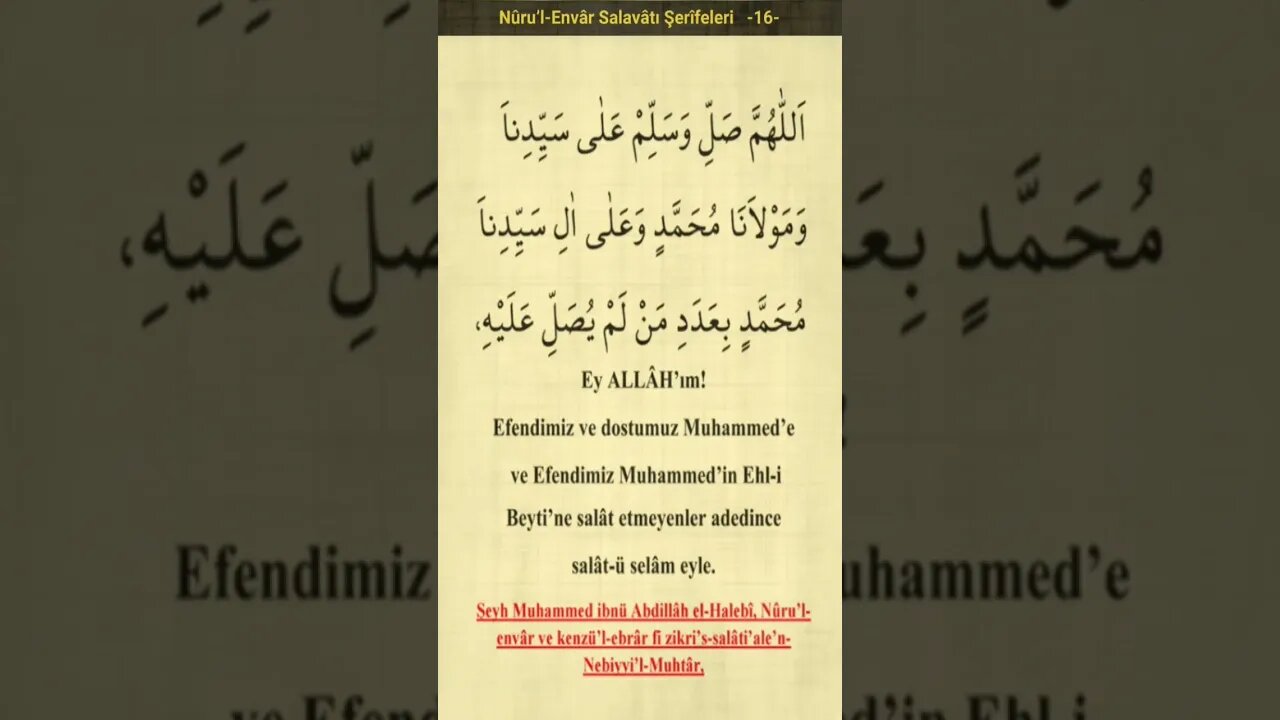 Nûru’l-Envâr Salavâtı Şerîfeleri -16-
اَللّٰهُمَّ صَلِّ وَسَلِّمْ عَلٰى سَيِّدِناَ
وَمَوْلاَنَا مُحَمَّدٍ وَعَلٰى اٰلِ سَيِّدِناَ
مُحَمَّدٍ بِعَدَدِ مَنْ لَمْ يُصَلِّ عَلَيْهِ،
Ey ALLÂH’ım!
Efendimiz ve dostumuz Muhammed’e
ve Efendimiz Muhammed’in Ehl-i
Beyti’ne salât etmeyenler adedince
salât-ü selâm eyle.
Şeyh Muhammed ibnü Abdillâh el-Halebî, Nûru’l-
envâr ve kenzü’l-ebrâr fî zikri’s-salâti’ale’n-
Nebiyyi’l-Muhtâr,